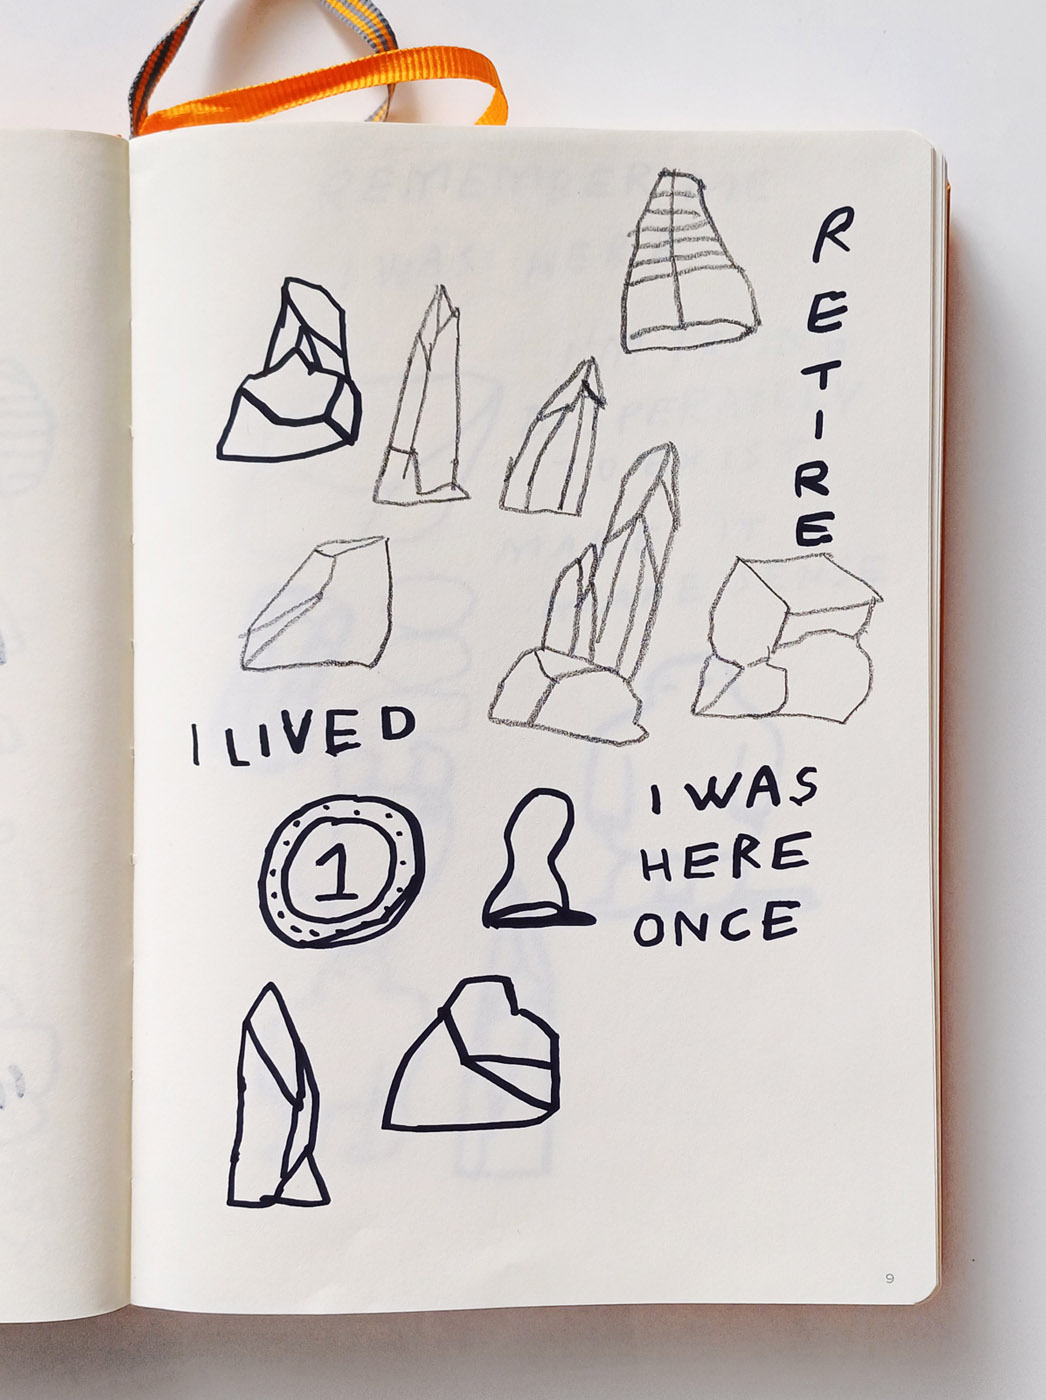 RETIRE
I LIVED
1
I WAS
HERE
ONCE
9